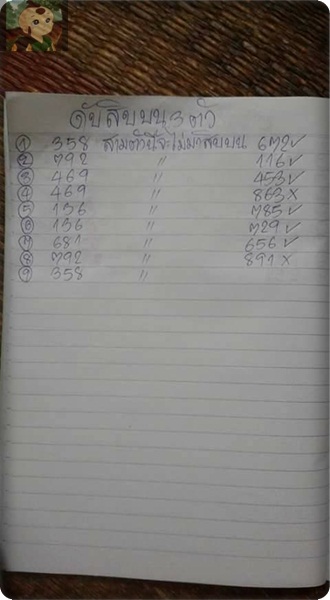 ดับสิบบน 3 ตัว
① 358 สามตัวนี้จะไม่มาสิบบน 672✓
② 792 〃 116✓
③ 469 〃 453✓
④ 469 〃 863×
⑤ 136 〃 785✓
⑥ 136 〃 729✓
⑦ 681 〃 656✓
⑧ 792 〃 891×
⑨ 358 〃